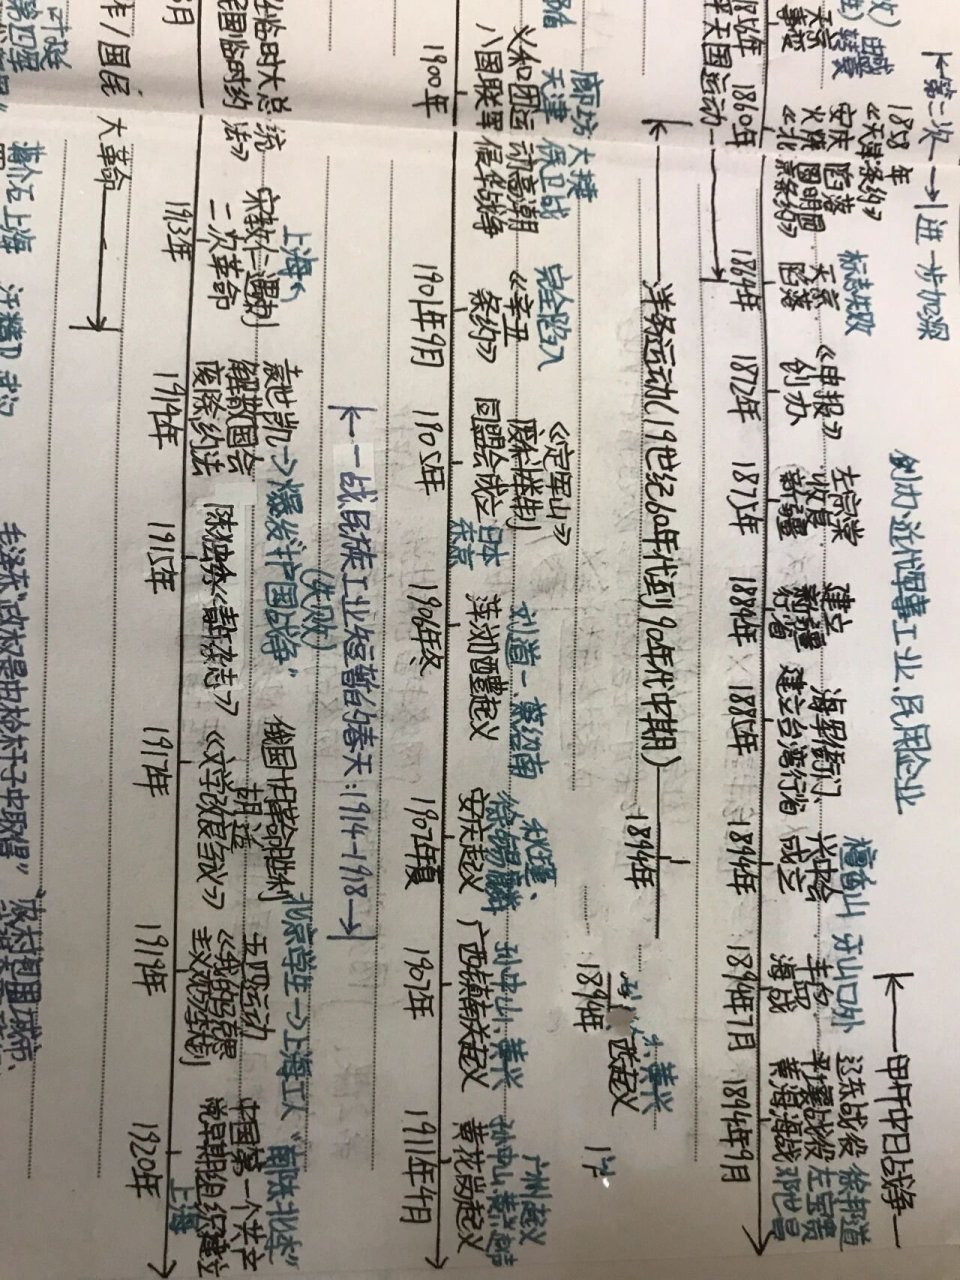 第二次
进一步加深
创办近代军事工业、民用企业
甲午中日战争
1858年
《天津条约》
安庆陷落
火烧圆明园
《北京条约》
标志失败
天京
陷落
《申报》
创办
左宗棠
收复
新疆
建立
新疆
行省
海军衙门、
建立台湾行省
檀香山
兴中会
成立
丰岛
海战
平壤战役
黄海海战
徐邦道
左宝贵
邓世昌
1860年
1864年
1872年
1875年
1884年
1885年
1894年
1894年7月
1894年9月
天国运动
洋务运动(19世纪60年代到90年代中期)
1894年
黄兴
起义
廊坊 大捷
天津 保卫战
义和团运动高潮
八国联军侵华战争
完全陷入
《辛丑
条约》
《定军山》
废科举制
同盟会成立
日本
东京
刘道一、蔡绍南
萍浏醴起义
秋瑾、
徐锡麟
安庆起义
孙中山、黄兴
广西镇南关起义
广州起义
黄花岗起义
1900年
1901年9月
1905年
1906年冬
1907年夏
1907年
1911年4月
一战民族工业短暂的春天:1914-1918
临时大总统
国临时约法》
上海
宋教仁遇刺
二次革命
袁世凯
解散国会
废除约法
(失败)
陈独秀《青年杂志》
俄国十月革命胜利
胡适
《文学改良刍议》
北京学生→上海工人
五四运动
"南陈北李"
中国第一个共产
党早期组织建立
上海
1913年
1914年
1915年
1917年
1919年
1920年
大革命
蒋介石上海
汪精卫武汉
毛泽东"政权是由枪杆子中取得"
"农村包围城市、